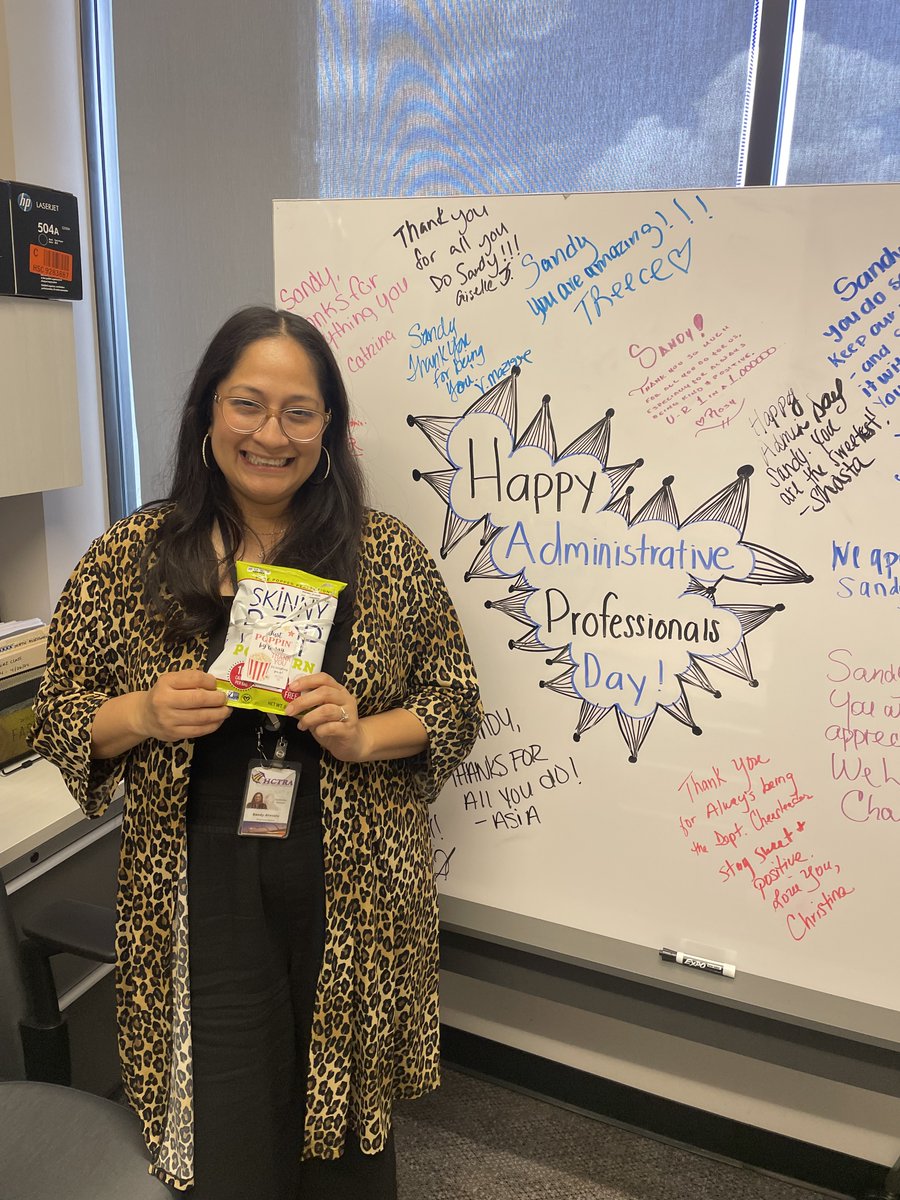 hp
LASERJET
504A
C
Sandy,
Thanks for
everything you
Catrina
Thank you
for all you
Do Sandy!!!
Giselle
Sandy
you are amazing!!!
Treece
Sandy
Thank you
for being
you.
Sandy!
Thank you so much
for all you do for us.
Especially for always
being kind & positive.
U-R 1 in a 1,000,000
Roxy
Sandy
you do s
Keep our
- and s
it wit
you
Happy
Admin Day
Sandy. You
are the sweetest!!
- Shasta
Happy
Administrative
Professionals
Day!
We ap
Sandy
Sandy
You a
apprec
We L
Cha
SANDY,
THANKS FOR
ALL YOU DO!
- ASIA
Thank you
for Always being
the Dept. Cheerleader
stay sweet &
positive.
Love you,
Christina
SKINNY
POP
POPCORN
Just
POPPIN'
by to say
FREE
HCTRA
EXPO